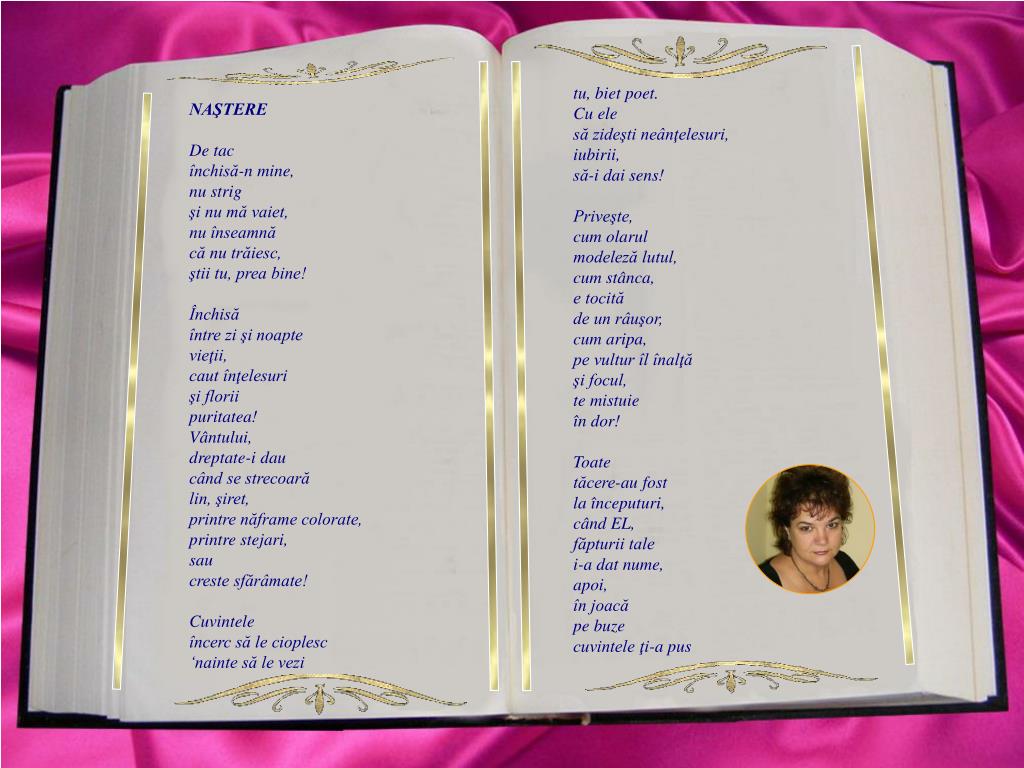 NAŞTERE
De tac
închisă-n mine,
nu strig
şi nu mă vaiet,
nu înseamnă
că nu trăiesc,
ştii tu, prea bine!
Închisă
între zi şi noapte
vieţii,
caut înţelesuri
şi florii
puritatea!
Vântului,
dreptate-i dau
când se strecoară
lin, şiret,
printre năframe colorate,
printre stejari,
sau
creste sfărâmate!
Cuvintele
încerc să le cioplesc
‘nainte să le vezi
tu, biet poet.
Cu ele
să zideşti neânţelesuri,
iubirii,
să-i dai sens!
Priveşte,
cum olarul
modelează lutul,
cum stânca,
e tocită
de un râuşor,
cum aripa,
pe vultur îl înalţă
şi focul,
te mistuie
în dor!
Toate
tăcere-au fost
la începuturi,
când EL,
făpturii tale
i-a dat nume,
apoi,
în joacă
pe buze
cuvintele ţi-a pus